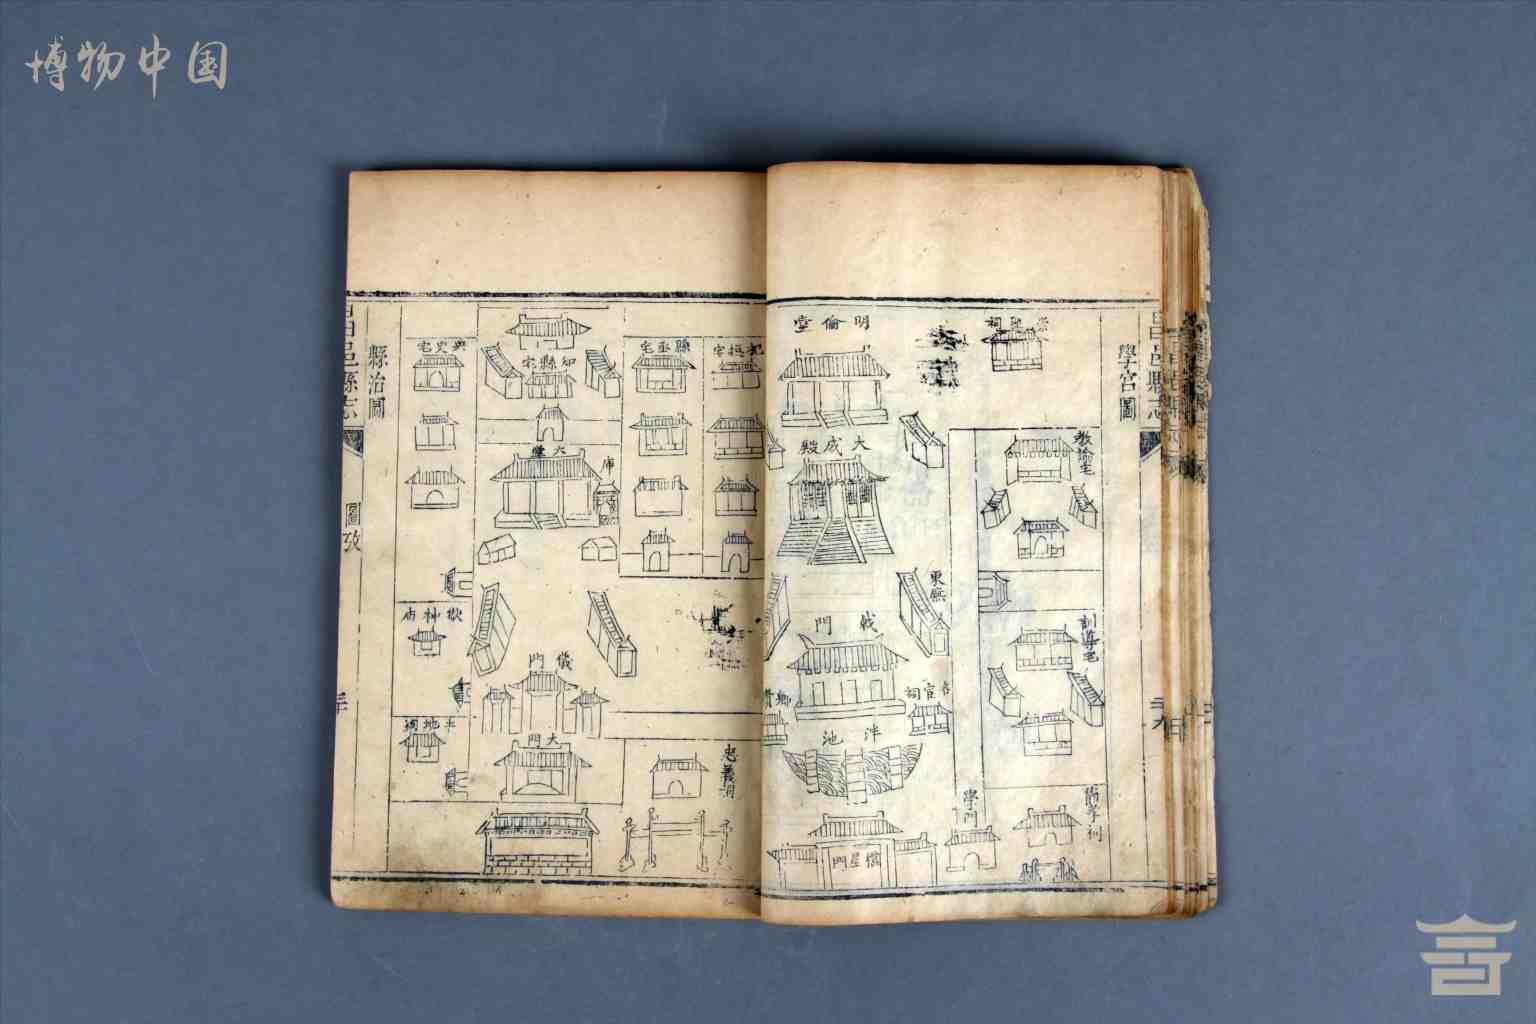 博物中国
昌邑縣志
學宮圖
明倫堂
大成殿
教諭宅
東廡
訓導宅
戟門
名宦祠
鄉賢
泮池
學門
節孝祠
櫺星門
昌邑縣志
圖攷
縣治圖
典史宅
知縣宅
縣丞宅
大堂
庫
獄神庙
儀門
土地祠
大門
忠義祠